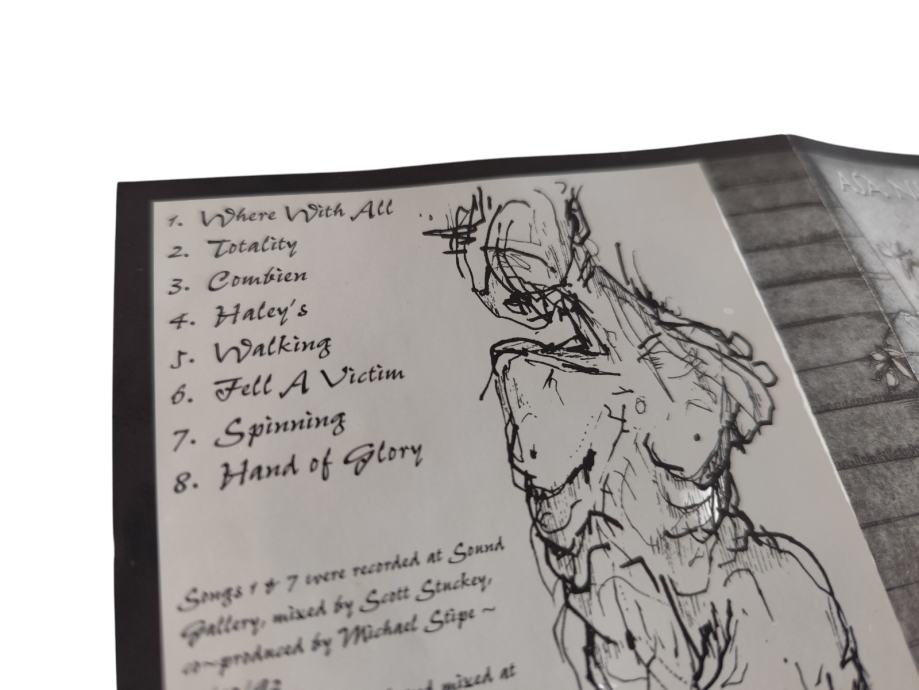 1. Where With All
2. Totality
3. Combien
4. Haley's
5. Walking
6. Fell A Victim
7. Spinning
8. Hand of Glory
Songs 1 & 7 were recorded at Sound
Gallery, mixed by Scott Stuckey,
co-produced by Michael Stipe ~
mixed at